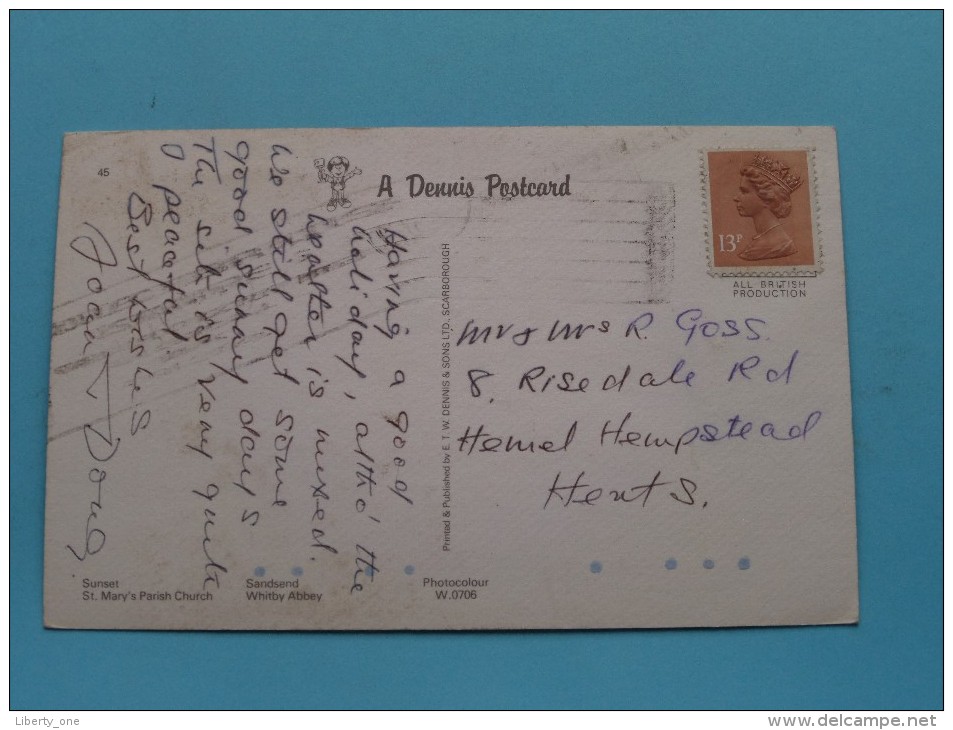 45
A Dennis Postcard
13P
ALL BRITISH
PRODUCTION
Having a good
holiday, altho' the
weather is mixed.
We still get some
good sunny days
The site is very quite
& peaceful.
Best wishes
Joan & Doug
Printed & Published by E. T. W. DENNIS & SONS LTD., SCARBOROUGH
Mr & Mrs R. GOSS.
8, Risedale Rd
Hemel Hempstead
Herts.
Sunset
St. Mary's Parish Church
Sandsend
Whitby Abbey
Photocolour
W.0706
Liberty_one
www.delcampe.net